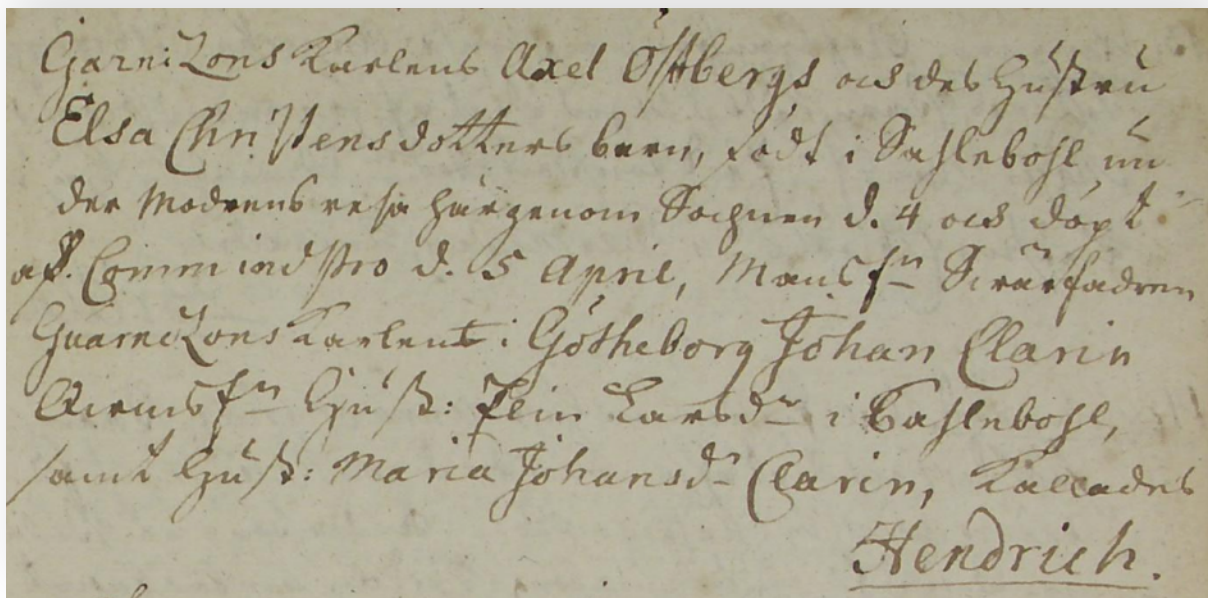 Garnizons Karlens Axel Östbergs och des Hustru
Elsa Christensdotters barn, födt i Sahlebohl un
der Modrens resa härgenom Sochnen d. 4 och döpt
af Comminist:ro d. 5 April, Mans fn Swärfadren
Guarnizons Karlens i Götheborg Johan Clarin
Qwins fn Hust: Elin Larsdr i Sahlebohl,
samt Hust: Maria Johansdr Clarin, Kallades
Hendrich.